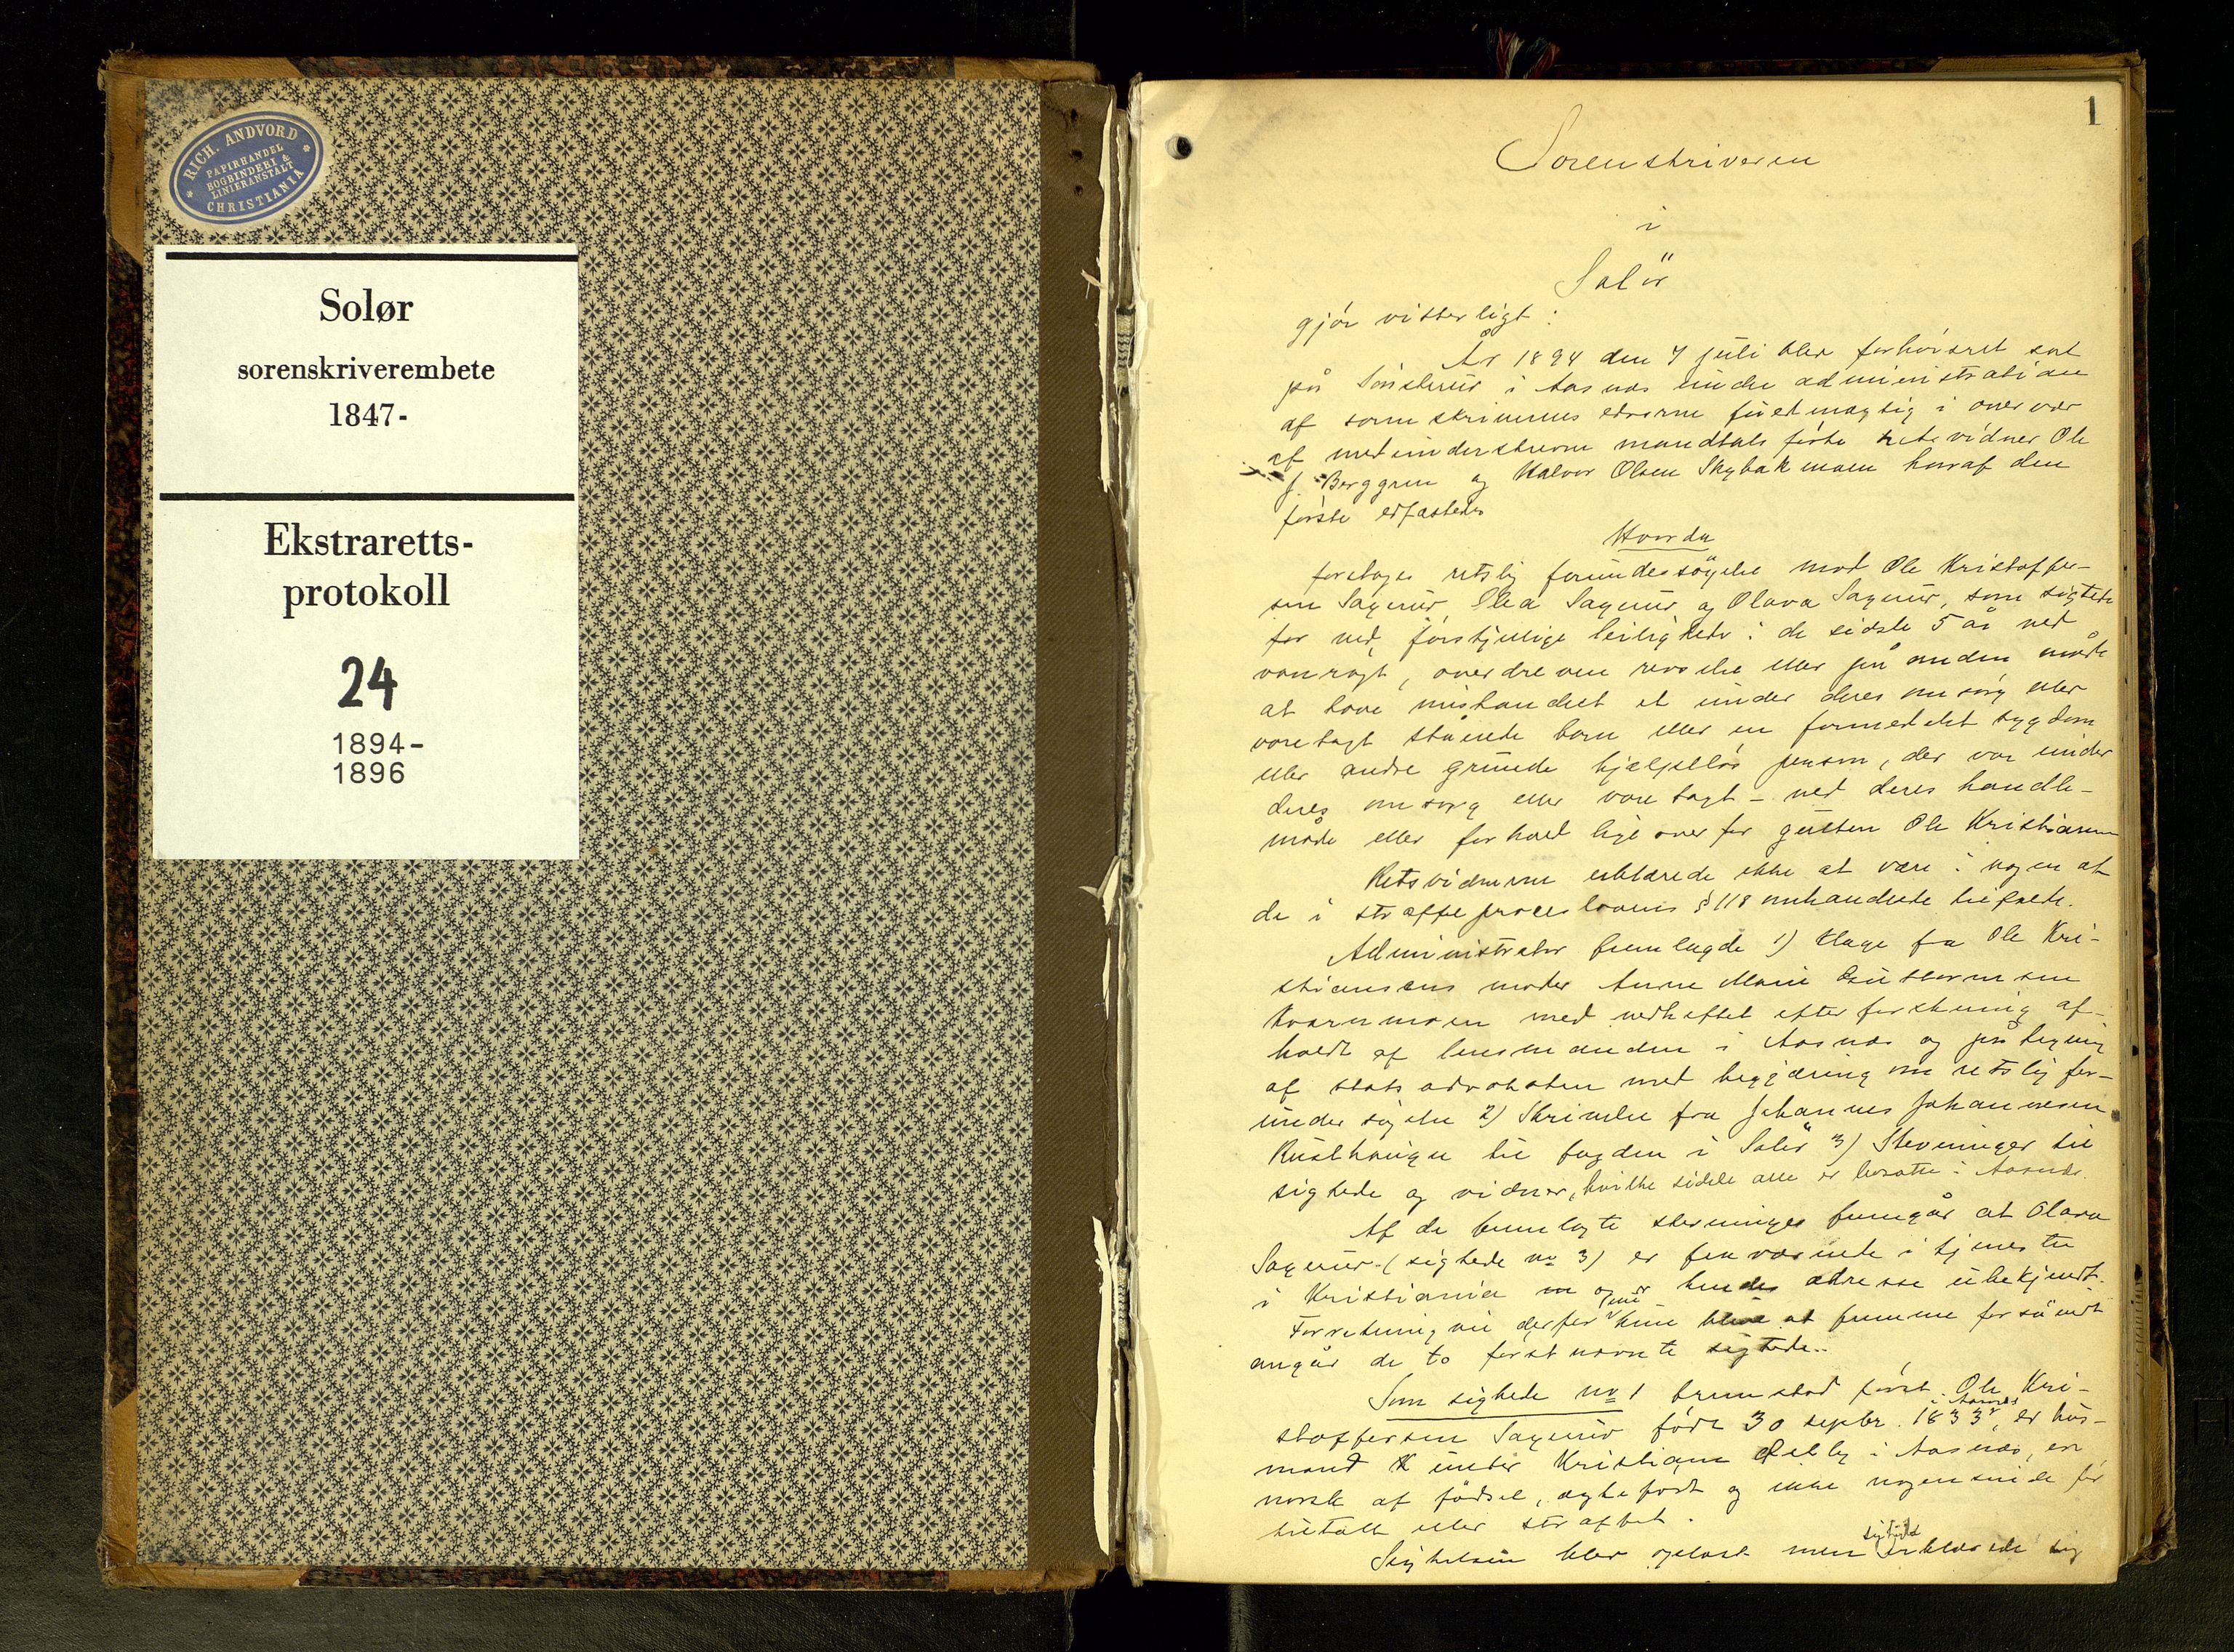 RICH. ANDVORD
PAPIRHANDEL
BOGBINDERI &
LINIERANSTALT
CHRISTIANIA
Solør
sorenskriverembete
1847-
Ekstraretts-
protokoll
24
1894-
1896
1
Sorenskriveren
i
Solör
gjör vitterligt:
År 1894 den 7 juli blev forhörsret sat
på Sönsterud i Aasnæs under administration
af sorenskriverens edsvorne fuldmægtig i overvær
af medunderskrevne mandtalsförte retsvidner Ole
J. Berggren og Halvor Olsen Skybakmoen hvoraf den
förste edfæstedes
Hvorda
foretoges retslig forundersögelse mod Ole Kristoffer-
sen Sagerud, Olea Sagerud og Olava Sagerud, som sigtede
for ved forskjellige leiligheder i de sidste 5 år ved
vanrögt, overdreven revselse eller på anden måde
at have mishandlet et under deres omsorg eller
varetægt stående barn eller en formedelst sygdom
eller andre grunde hjælpelös person, der var under
deres omsorg eller varetægt - ved deres handle-
måde eller forhold lige overfor gutten Ole Kristiansen
Retsvidnerne erklærede ikke at være i nogen af
de i straffeproceslovens § 118 omhandlede tilfælde.
Administrator fremlagde 1) Klage fra Ole Kri-
stiansens moder Anne Marie Guttormsen
Kværnmoen med vedheftet efterforskning af-
holdt af lensmanden i Aasnæs og påtegning
af statsadvokaten med begjæring om retslig for-
undersögelse 2) Skrivelse fra Johannes Johannesen
til fogden i Solör 3) Stevninger til
sigtede og vidner, hvilke sidste alle er bosatte i Aasnæs.
Af de fremlagte stevninger fremgår at Olava
Sagerud (sigtede no 3) er fraværende i tjeneste
i Kristiania og er hendes adresse ubekjendt.
Forretning vil derfor nu kun blive at fremme forsåvidt
angår de to förstnævnte sigtede.
Som sigtede no 1 fremstod först Ole Kri-
stoffersen Sagerud född 30 septbr. 1833 i Aasnæs er hus-
mand under Kristian i Aasnæs, er
norsk af födsel, ægtefödt og ikke nogensinde för
tiltalt eller straffet.
Sigtelsen blev oplæst men sigtede erklærede sig